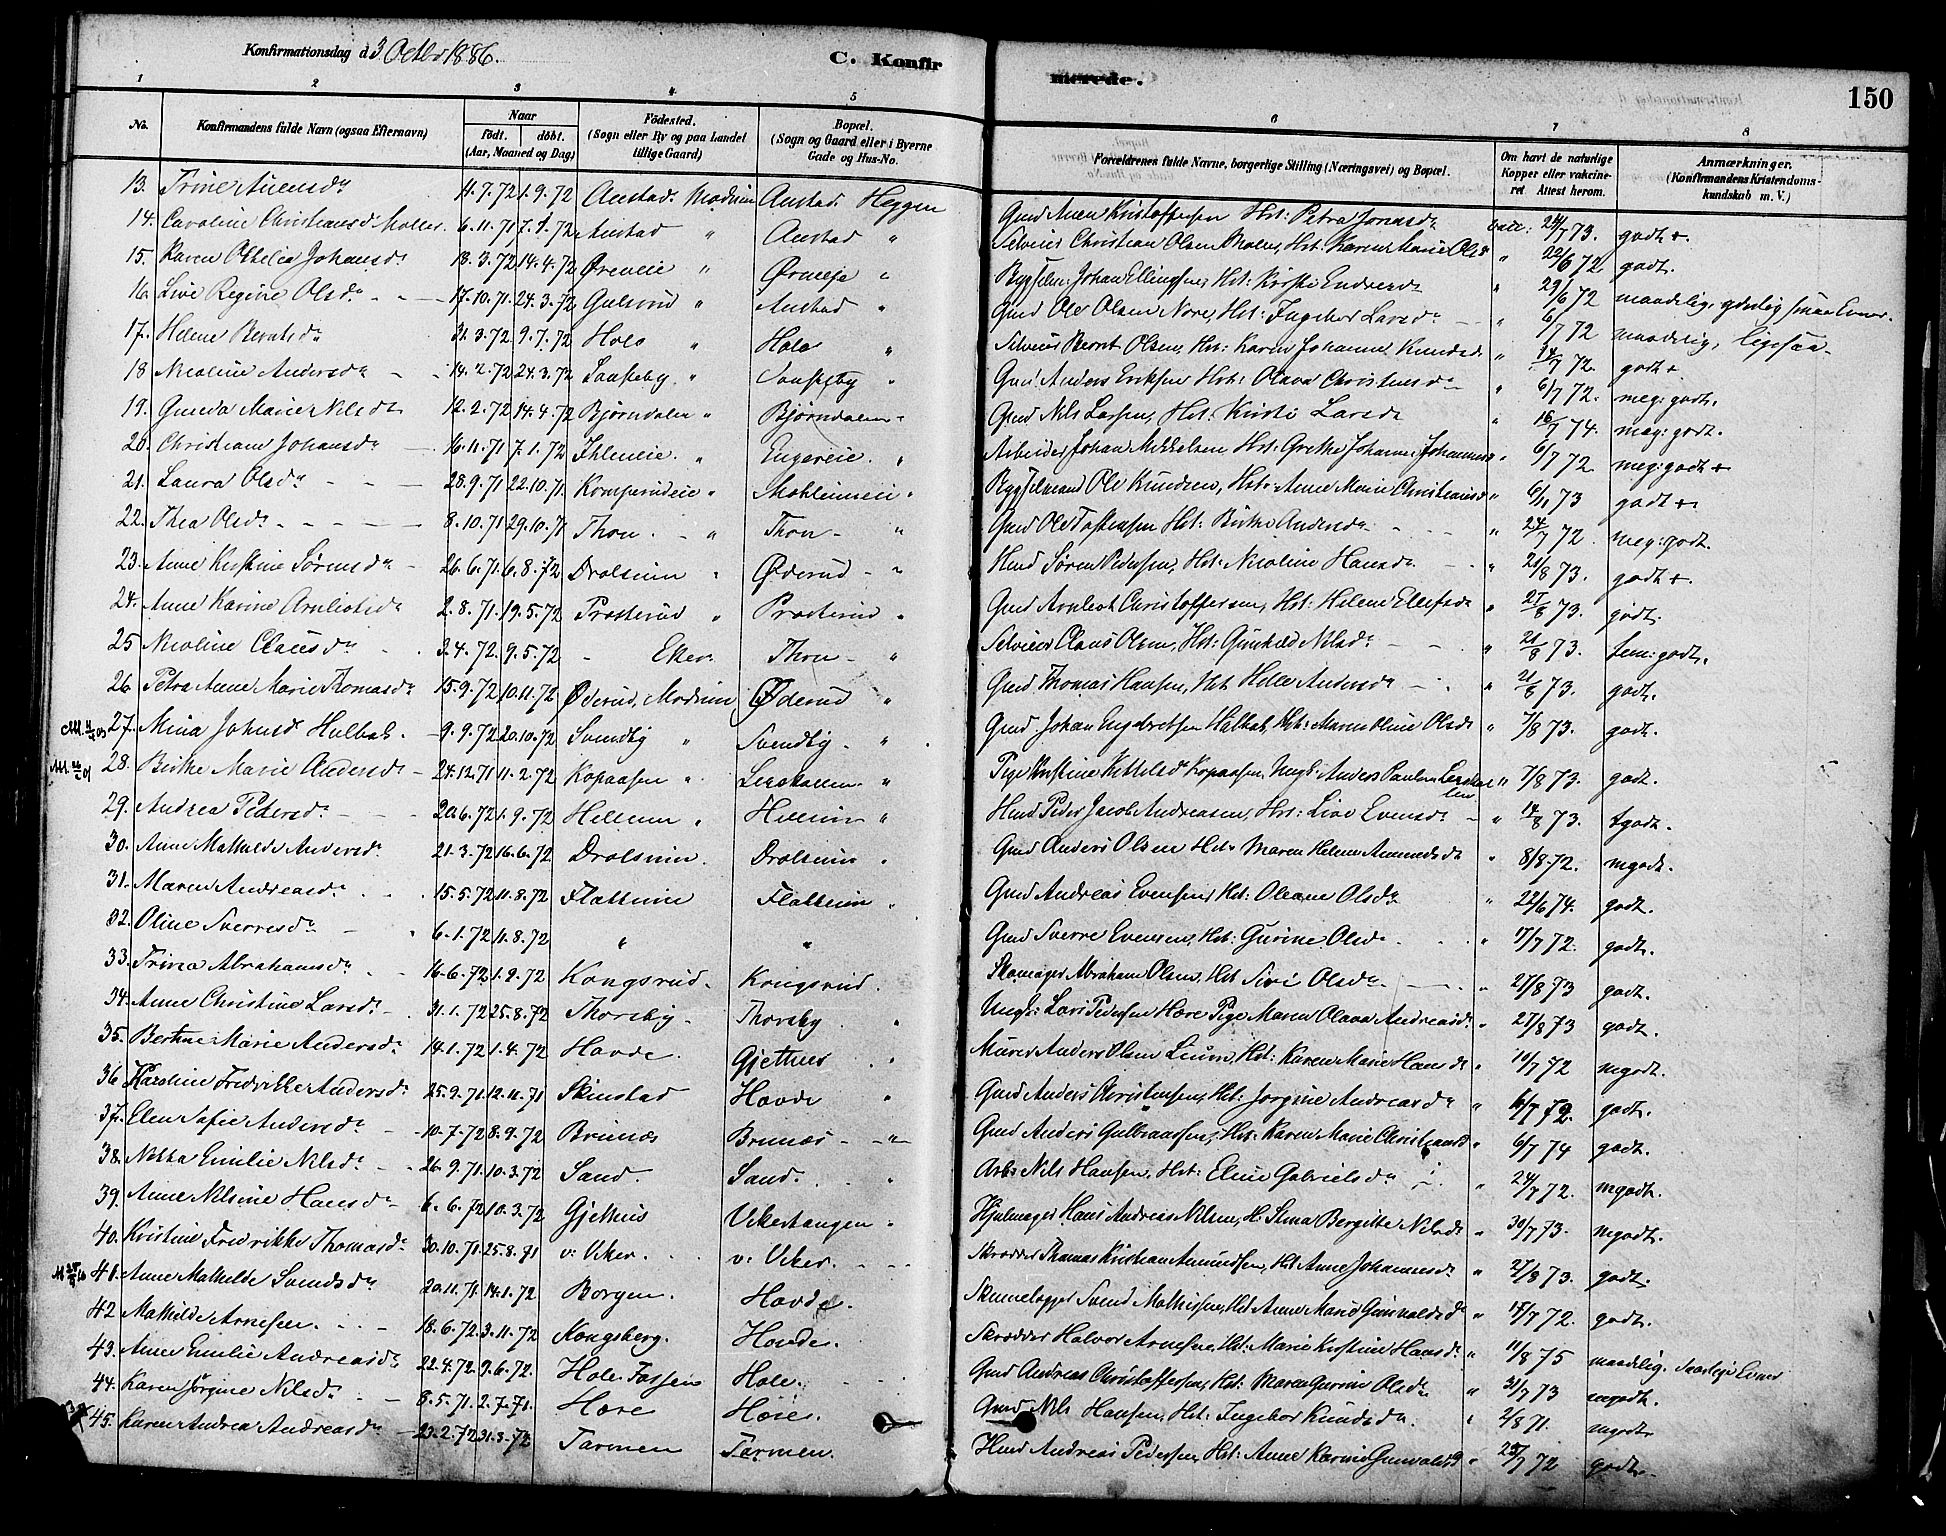 Konfirmationsdag d 3 Octbr 1886.
C. Konfir
merede.
150
1 2 3 4 5 6 7 8
No.
Konfirmandens fulde Navn (ogsaa Efternavn)
Naar
födt. döbt.
(Aar, Maaned og Dag)
Födested.
(Sogn eller By og paa Landet
tillige Gaard)
Bopæl.
(Sogn og Gaard eller i Byerne
Gade og Hus-No.
Forældrenes fulde Navne, borgerlige Stilling (Næringsvei) og Bopæl.
Om havt de naturlige
Kopper eller vakcine-
ret Attest herom.
Anmærkninger.
(Konfirmandens Kristendoms-
kundskab m. V.)
13. 11.7.72 1.9.72 Modum Heggen Gmd Kristoffersen Hst: Petra Jonasdr 24/7 73. godt +.
14. Caroline Christiansd Moller 6.11.71 " " Selveier Christian Olsen Moller, Hst: Karen Marie Olsd " 22/6 72 godt.
15. Karen Othelia Johansdr 18.3.72 14.4.72 " " Johan Ellingsen, Hst: Kirsti " 29/6 72
16. Live Regine Olsdr 17.10.71 24.3.72 Gulsrud " " Gmd Ole Olsen Nore, Hst: Ingebor Larsdr " 6/7 72 maadelig,
17. Helene Berntsdr 31.3.72 9.7.72 Hole " Hole " Selveier Bernt Olsen, Hst: Karen Johanne Knudsd " 14/7 72. godt +
18 Nicoline Andersdr 14.2.72 24.3.72 " " Gmd Anders Eriksen Hst: Olava Christensdr " 6/7 72. meg: godt.
19. Gunda Marie Nilsdr 12.2.72 14.4.72 Bjørndalen " Bjørndalen " Gmd Nils Larsen, Hst: Kirsti Larsdr " 16/7 74. meg: godt.
20. Christiane Johansdr 16.11.71 7.1.72 Ihleneie. " Engereie. " Arbeider Johan Mikkelsen Hst: Grethe Johanne Johannesd " 6/7 72. meg: godt +
21. Laura Olsdr 28.9.71 22.10.71. Komperudeie " " Bygselmand Ole Knudsen, Hst: Anne Marie Christiansd " 6/11 73 godt +.
22. Thea Olsdr 8.10.71 29.10.71 Thon. " Thon " Gmd Ole Tostensen Hst: Birthe Andersdr " 24/7 72. meg: godt.
23. Anne Kirstine Sørensdr 26.6.71 6.8.72 Drolsum " Øderud " Hmd Søren Pedersen, Hst: Nicoline Hansdr " 21/8 73. godt +.
24. Anne Karine Arnliotsdr 2.8.71. 19.5.72 Prosterud " Prosterud " Gmd Arnleot Christoffersen, Hst: Helene Ellefsdr " 27/8 73. godt.
25 Nicoline Clausdr 3.4.72. 9.5.72 Eker. Thon " Selveier Claus Olsen, Hst: Gunhild Nilsdr " 21/8 73. tem: godt.
26. Petra Anne Marie Thomasdr 15.9.72 10.11.72 Øderud, Modum Øderud " Gmd Thomas Hansen, Hst Helle Andersdr " 21/8 73. godt.
27. Mina Johansd Holbak. 9.9.72 20.10.72 Svendby " Svendby. " Gmd Johan Engebretsen Holbak, Hst: Maren Oline Olsdr " 7/8 73. godt.
28. Birthe Marie Andersdr 24.12.71 11.2.72 Kopaasen " Lerskallen " Pige Kirstine Kittelsd Kopaasen, Ungk: Anders Paulsen Lerskal-
len " 7/8 73. godt.
29. Andrea Pedersdr 20.6.72 1.9.72 Hellum " Hellum " Hmd Peder Jacob Andreasen, Hst: Live Evensdr " 14/8 73. tgodt.
30. Anne Mathilde Andersdr 21.3.72 16.6.72 Drolsum. Drolsum " Gmd Anders Olsen Hst: Maren Helene Amundsdr " 8/8.72. mgodt.
31. Maren Andreasdr 15.5.72 11.8.72 Flattum Flattum " Gmd Andreas Evensen, Hst: Oleane Olsdr " 22/6 74. godt.
32. Oline Sverresdr 6.1.72 11.8.72 " " Gmd Sverre Evensen, Hst: Gurine Olsdr " 7/7 72. godt.
33. Trina Abrahamsdr 16.6.72 1.9.72 Kongsrud. Kongsrud. Skomager Abraham Olsen, Hst Siri Olsdr " 27/8 73 godt.
34. Anne Christine Larsdr 31.1.72 25.8.72 Thorsby. Thorsby " Ungk: Lars Pedersen Hære Pige Maren Olava Andreasdr " 27/8 73 godt.
35. Berthe Marie Andersdr 14.1.72 1.4.72 Hovde. Gjethus " Murer Anders Olsen Lium, Hst: Karen Marie Hansdr " 10/7 72 mgodt.
36 Karoline Fredrikke Andersdr 25.9.71 12.11.71 Skinstad Hovde " Gmd Anders Christensen, Hst: Jørgine Andreasdr " 6/7 72. godt.
37. Elen Sofie Andersdr 10.7.72 8.9.72 Brunæs Brunæs " Gmd Anders Gulbransen, Hst: Karen Marie Christiansd " 6/7 74 godt.
38. Netta Emilie Nilsdr 26.9.71 10.3.72 Sand. Sand. " Arb: Nils Hansen, Hst: Eline Gabrielsdr " 24/7 72. mgodt.
39. Anne Nilsine Hansdr 6.6.72 10.3.72 Gjethus Vikertangen " Hjulmager Hans Andreas Nilsen, H. Stina Bergitte Nilsdr " 30/7 73. mgodt.
40. Kristine Fredrikke Thomasdr 30.10.71 25.8.71 v: Viker. v: Viker. Skrædder Thomas Kristian Amundsen, Hst Anne Johannesdr " 27/8 73. godt.
41. Anne Mathilde Svendsdr 20.11.71 14.1.72 Borgen. Hovde. Svend Mathisen, Hst Anne Marie Gunvaldsdr " 17/7 72. godt.
42 Mathilde Arnesen. 18.6.72 3.11.72 Kongsberg. Hovde. Skrædder Halvor Arnesen, Hst: Marie Kirstine Hansdr " 11/8 75 maadelig. Svarlige Evner
43. Anne Emilie Andreasdr 22.4.72. 9.6.72. Hole Fossum Hole. Gmd Andreas Christoffersen, Hst: Maren Gurine Olsdr " 31/7 73 mgodt.
44. Karen Jørgine Nilsdr 8.5.71. 2.7.71. Hære Hære. Gmd Nils Hansen, Hst: Ingebor Knudsdr. " 2/8 71. mgodt
45. Karen Andrea Andreasdr 23.2.72 31.3.72 Tormen Tormen. Hmd Andreas Pedersen, Hst: Anne Karine Gunvaldsd " 25/7 72 godt.